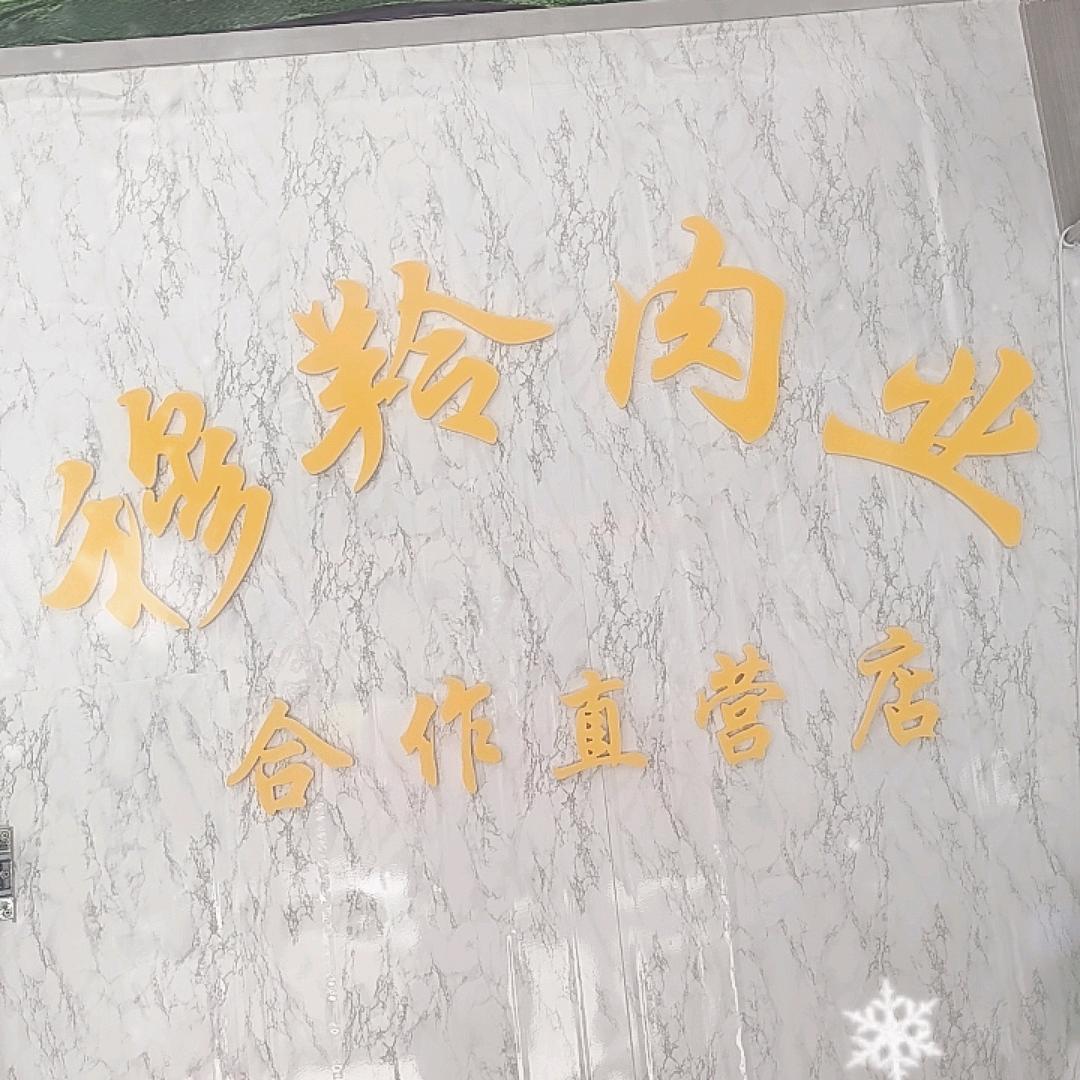 羚肉业
合作直营店